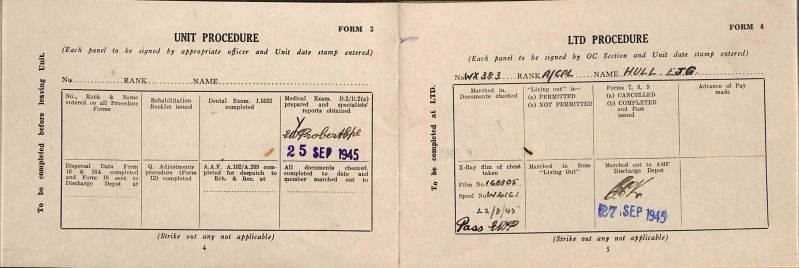 FORM 3
UNIT PROCEDURE
(Each panel to be signed by appropriate officer and Unit date stamp entered)
To be completed before leaving Unit.
No. RANK NAME
No., Rank & Name
entered on all Procedure
Forms
Rehabilitation
Booklet issued
Dental Exam. I.5033
completed
Medical Exam. D.2/D.2(a)
prepared and specialists'
reports obtained
25 SEP 1945
Dispersal Data Form
16 & 16A completed
and Form 16 sent to
Discharge Depot at
Q. Adjustments
procedure (Form
12) completed
A.A.F. A.102/A.209 com-
pleted for despatch to
Ech. & Rec. at
All documents checked,
completed to date and
member marched out to
(Strike out any not applicable)
4
FORM 4
LTD PROCEDURE
(Each panel to be signed by OC Section and Unit date stamp entered)
To be completed at LTD.
No. WX383 RANK A/CPL NAME HULL E.J.G.
Marched in.
Documents checked
"Living out" is—
(a) PERMITTED
(b) NOT PERMITTED
Forms 7, 8, 9
(a) CANCELLED
(b) COMPLETED
and Pass
issued
Advance of Pay
made
X-Ray film of chest
taken
Film No. 168805
Spool No.
22/8/45
Pass
Marched in from
"Living Out"
Marched out to AMF
Discharge Depot
27 SEP 1945
(Strike out any not applicable)
5